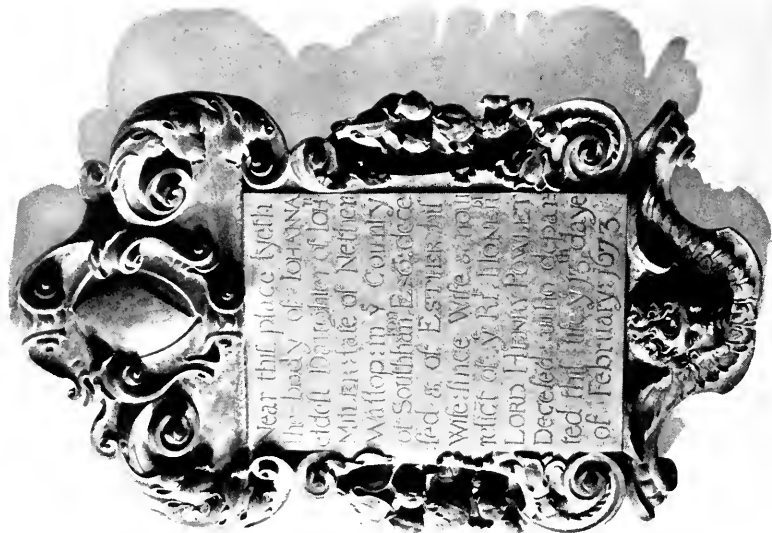 Near this place lyeth
the body of IOHANNA
eldest Daughter of Ioh
MILLER: late of Nether
Wallop: in y County
of Southton Esq: decea
sed & of ESTHER his
Wife: since Wife & now
relict of y Rt HONER
LORD HENRY POWLET
Decesed: who depar
ted this life y 5th daye
of February: 1673